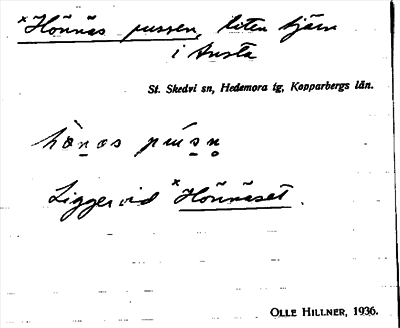 ×Hönnäs pussen, liten tjärn
i Ansta
St. Skedvi sn, Hedemora tg, Kopparbergs län.
hònos pùsn
Ligger vid ×Hönnäset.
OLLE HILLNER, 1936.